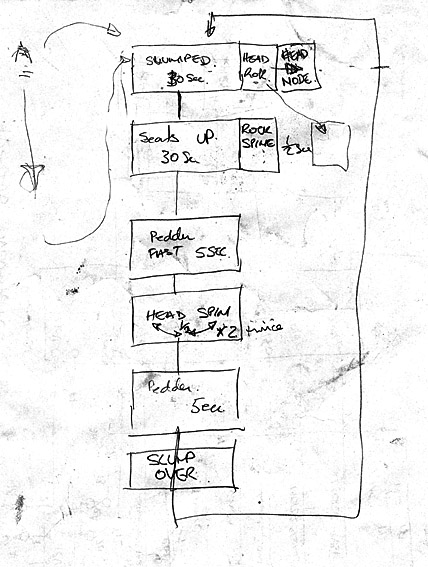 A
SLUMPED.
30 Sec.
HEAD
ROK
HEAD
NODE.
Seats UP.
30 Sec
ROCK
SPINE
1/2 Sec
Pedder
FAST 5 SEC.
HEAD SPIN
1/2
*2 twice
Pedder.
5 Sec
SLUMP
OVER.